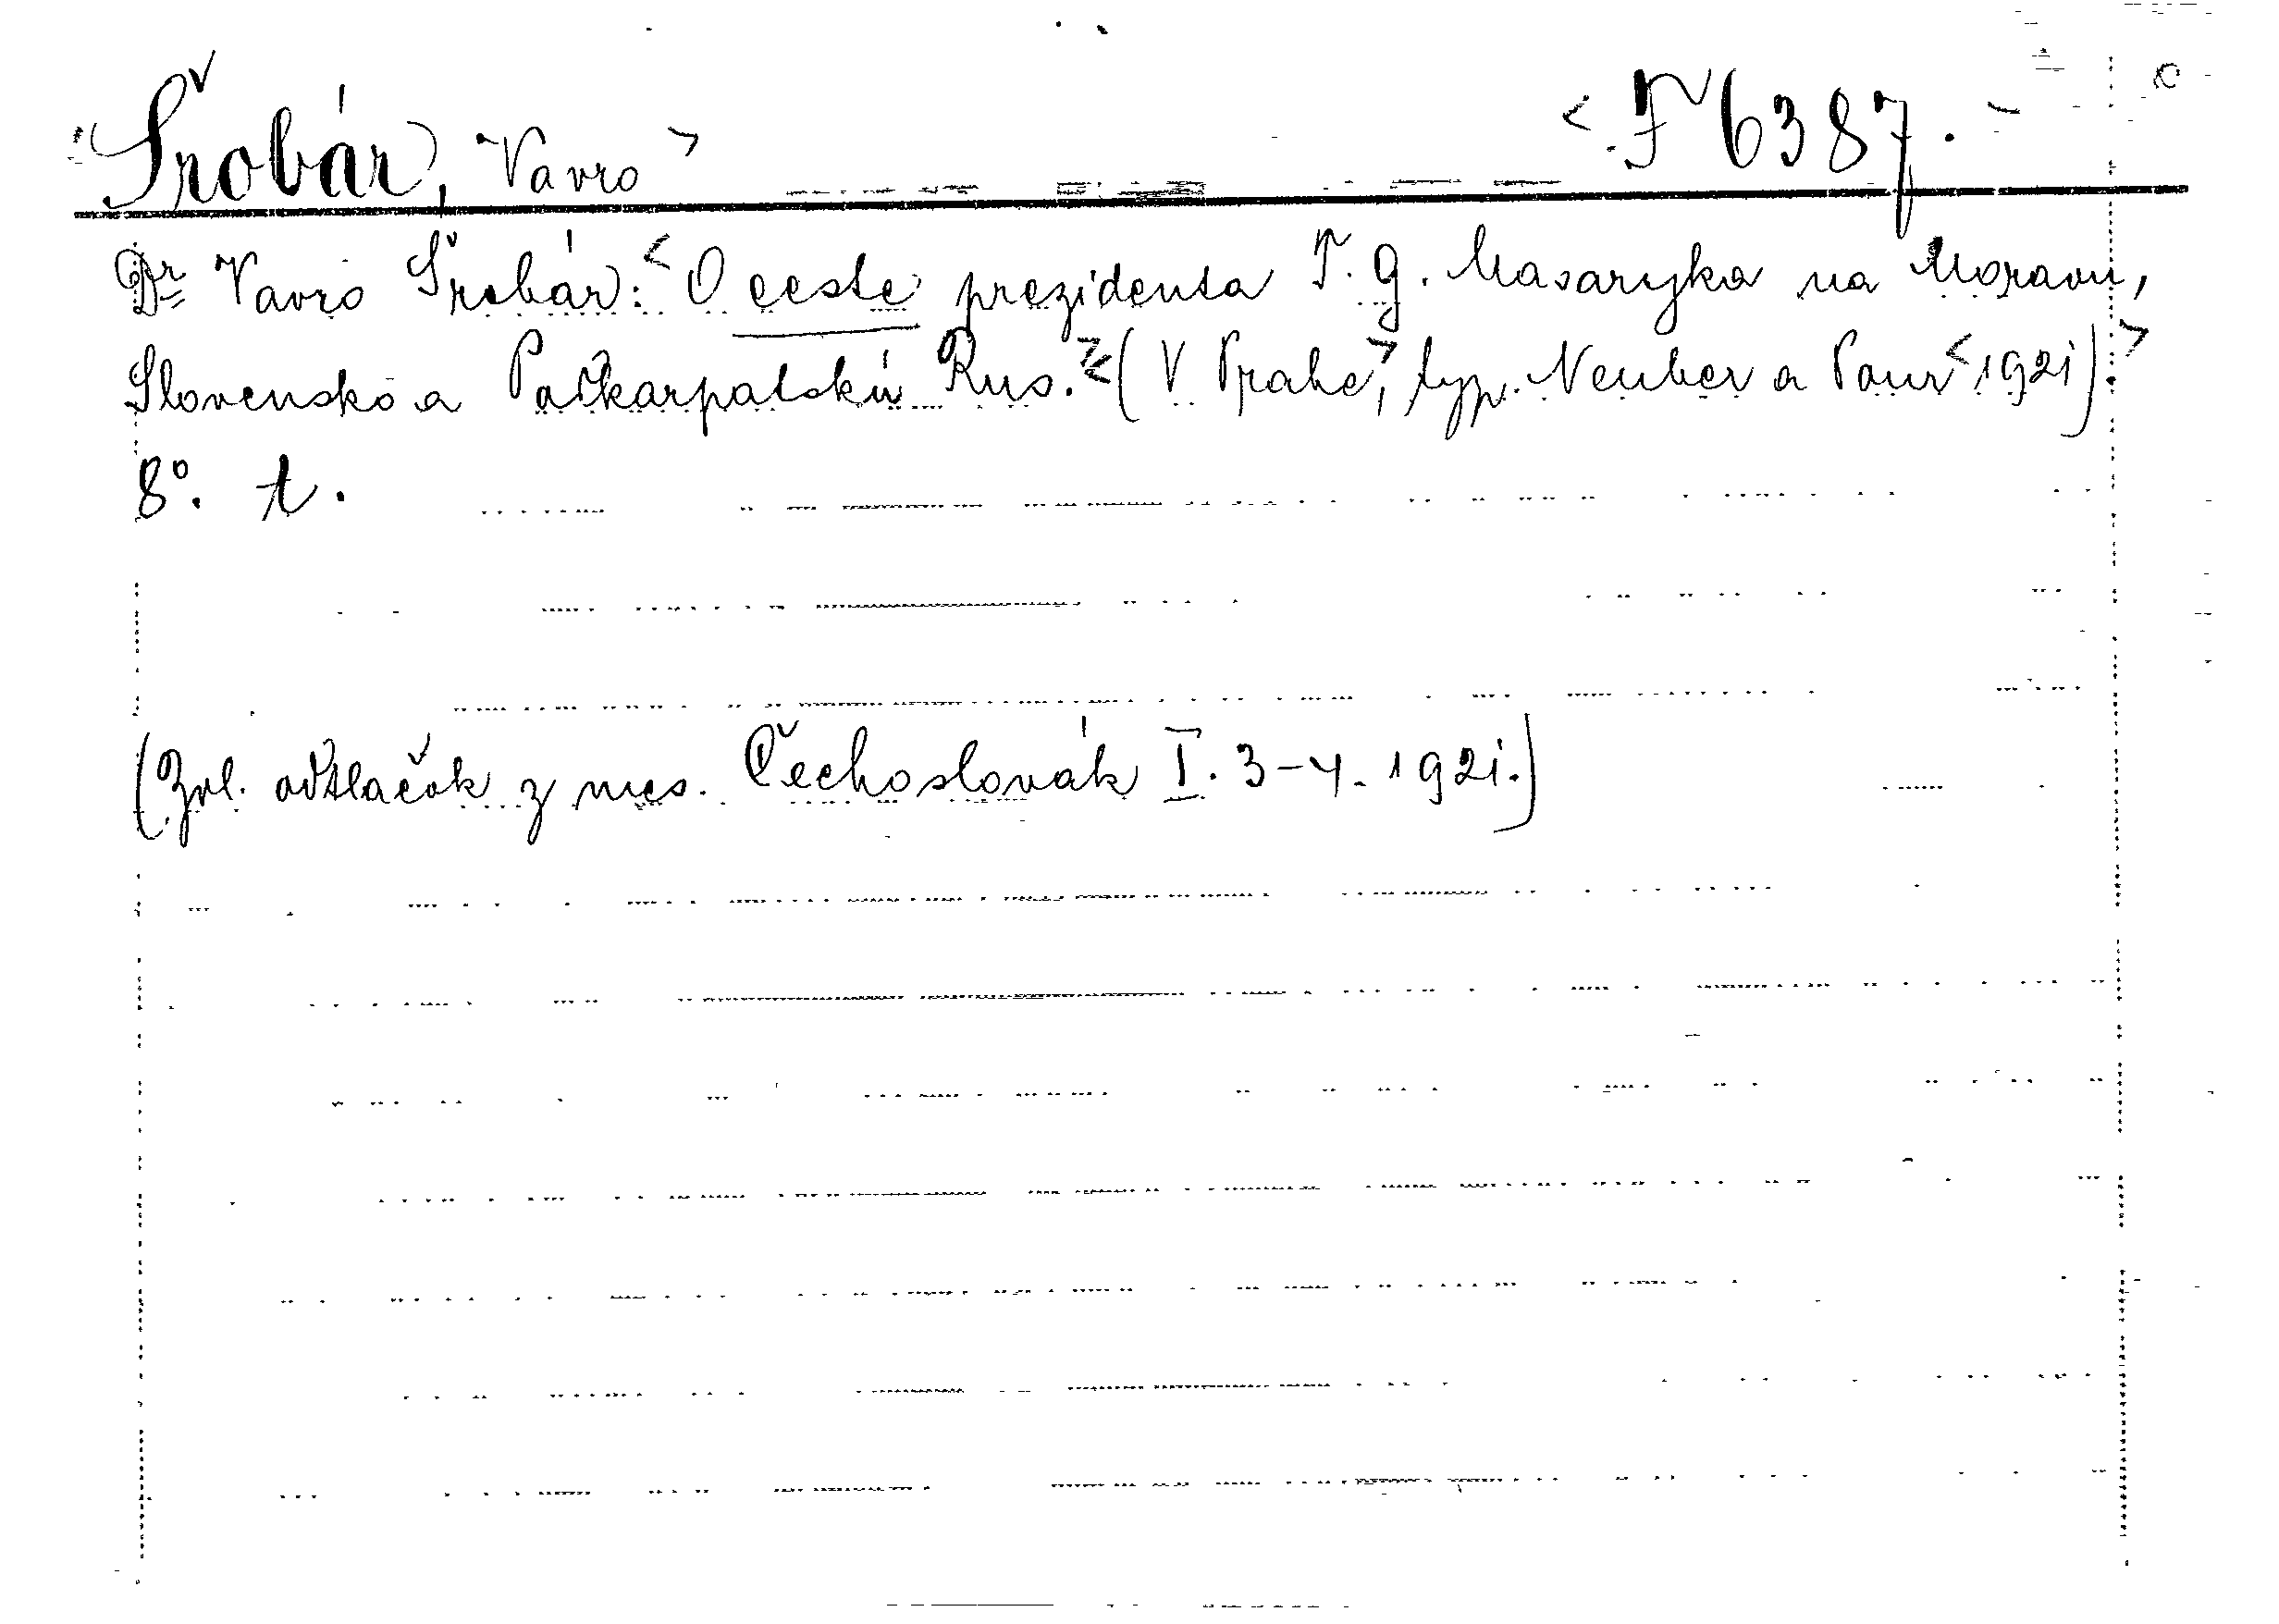 Šrobár, Vavro > < F 6387.
Dr Vavro Šrobár: < O ceste prezidenta T. G. Masaryka na Moravu,
Slovensko a Podkarpatskú Rus. > < (V Prahe, > typ. Neuber a Pour < 1921). >
8°. t.
(Zvl. odtlačok z mes. Čechoslovák I. 3-4. 1921.)